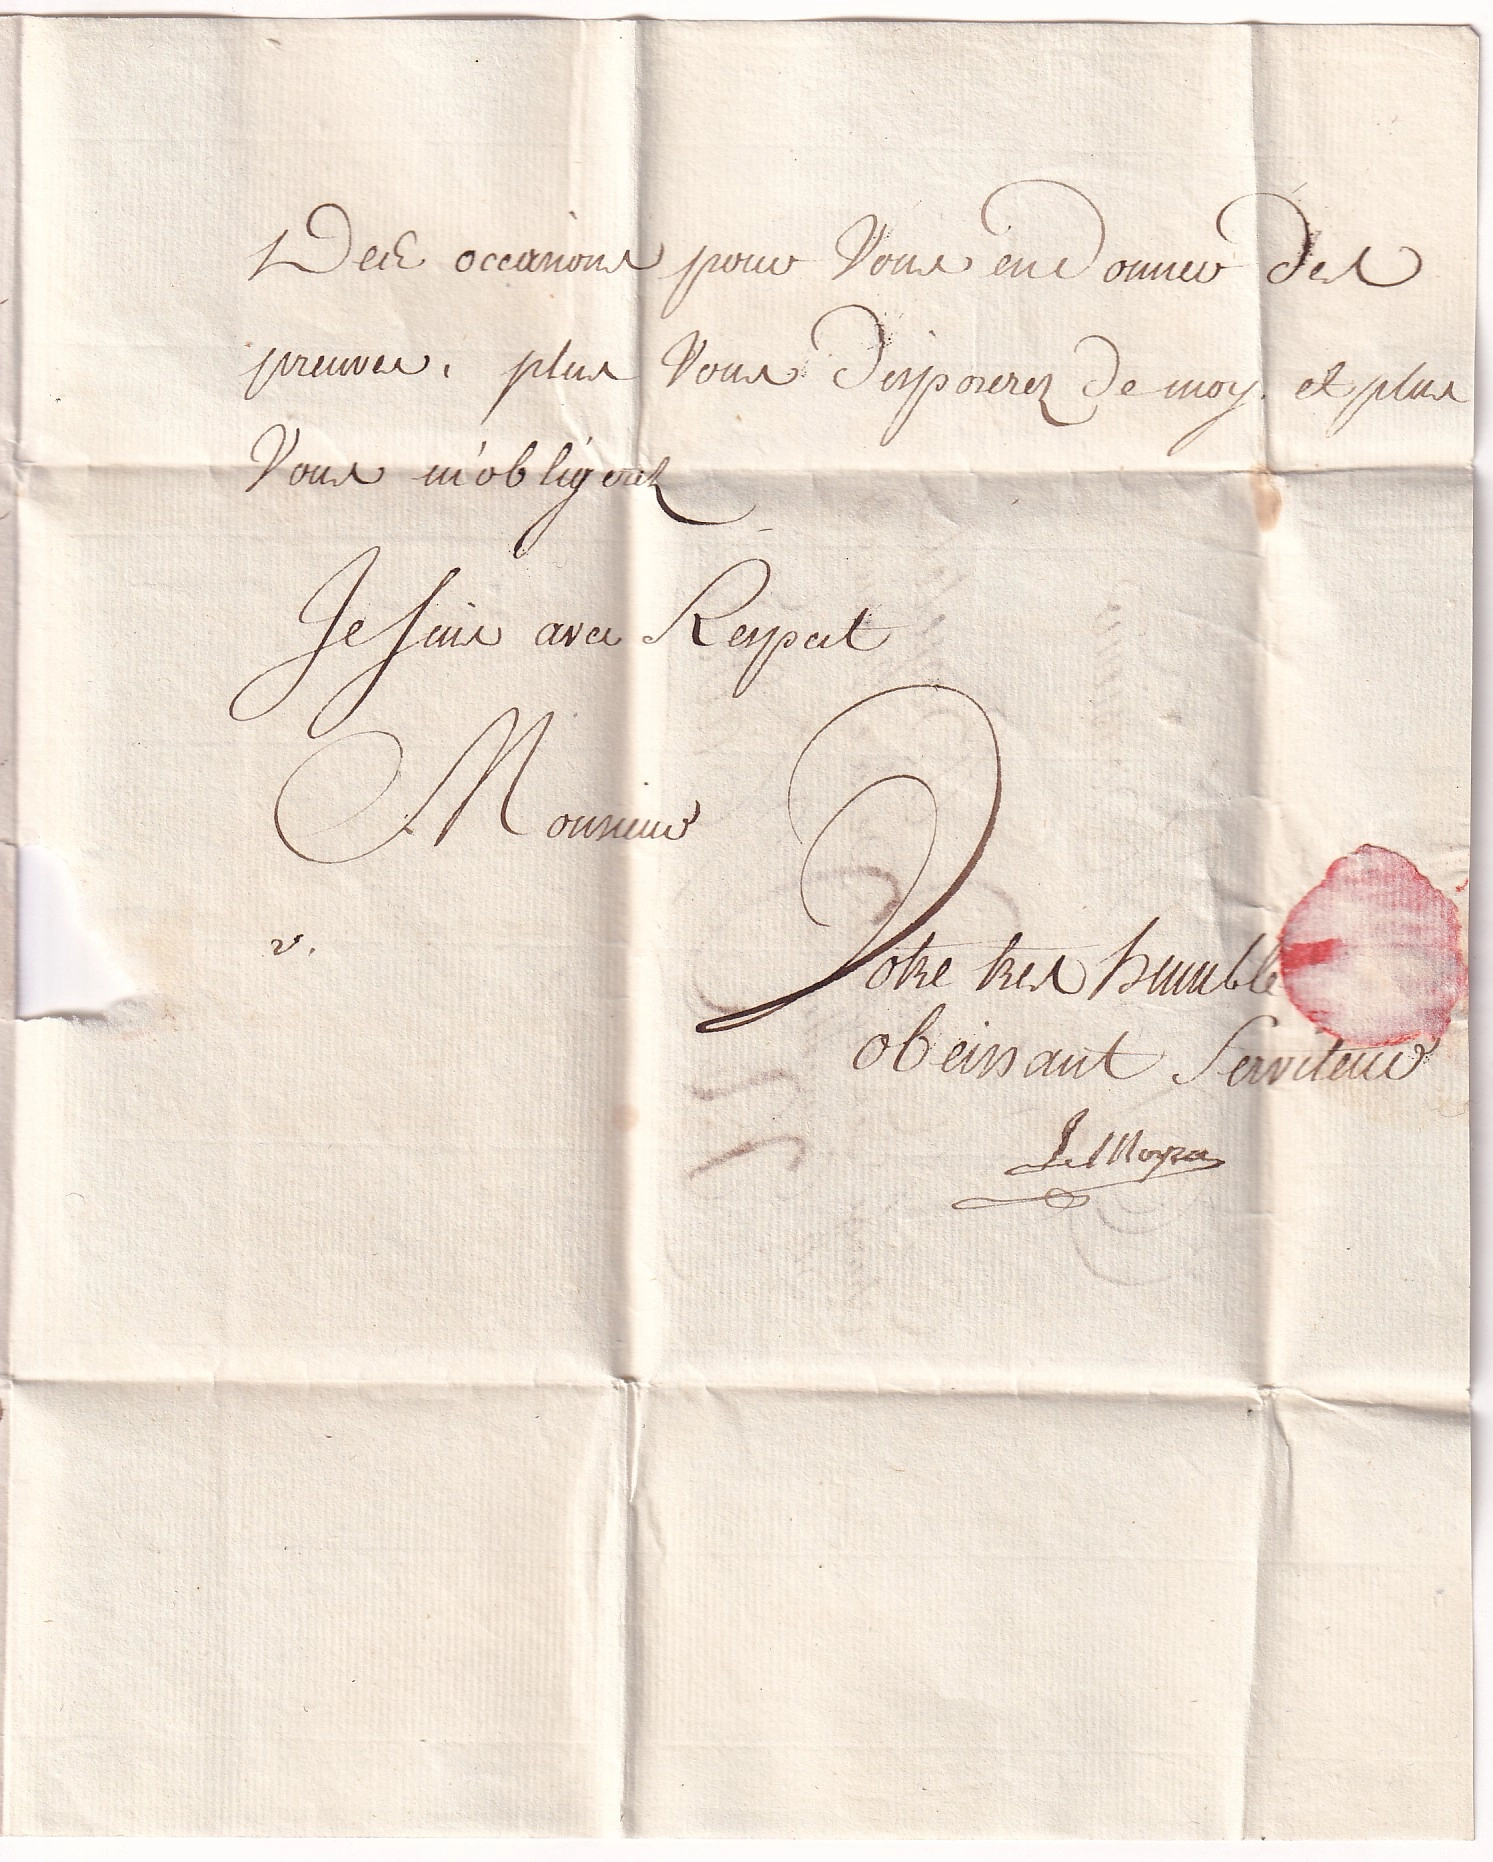 Des occasions pour Vous en Donner des
preuves, plus Vous disposerez de moy, et plus
Vous m'obligerez
Je suis avec Respect
Monsieur
v.
Votre tres humble
obeissant serviteur